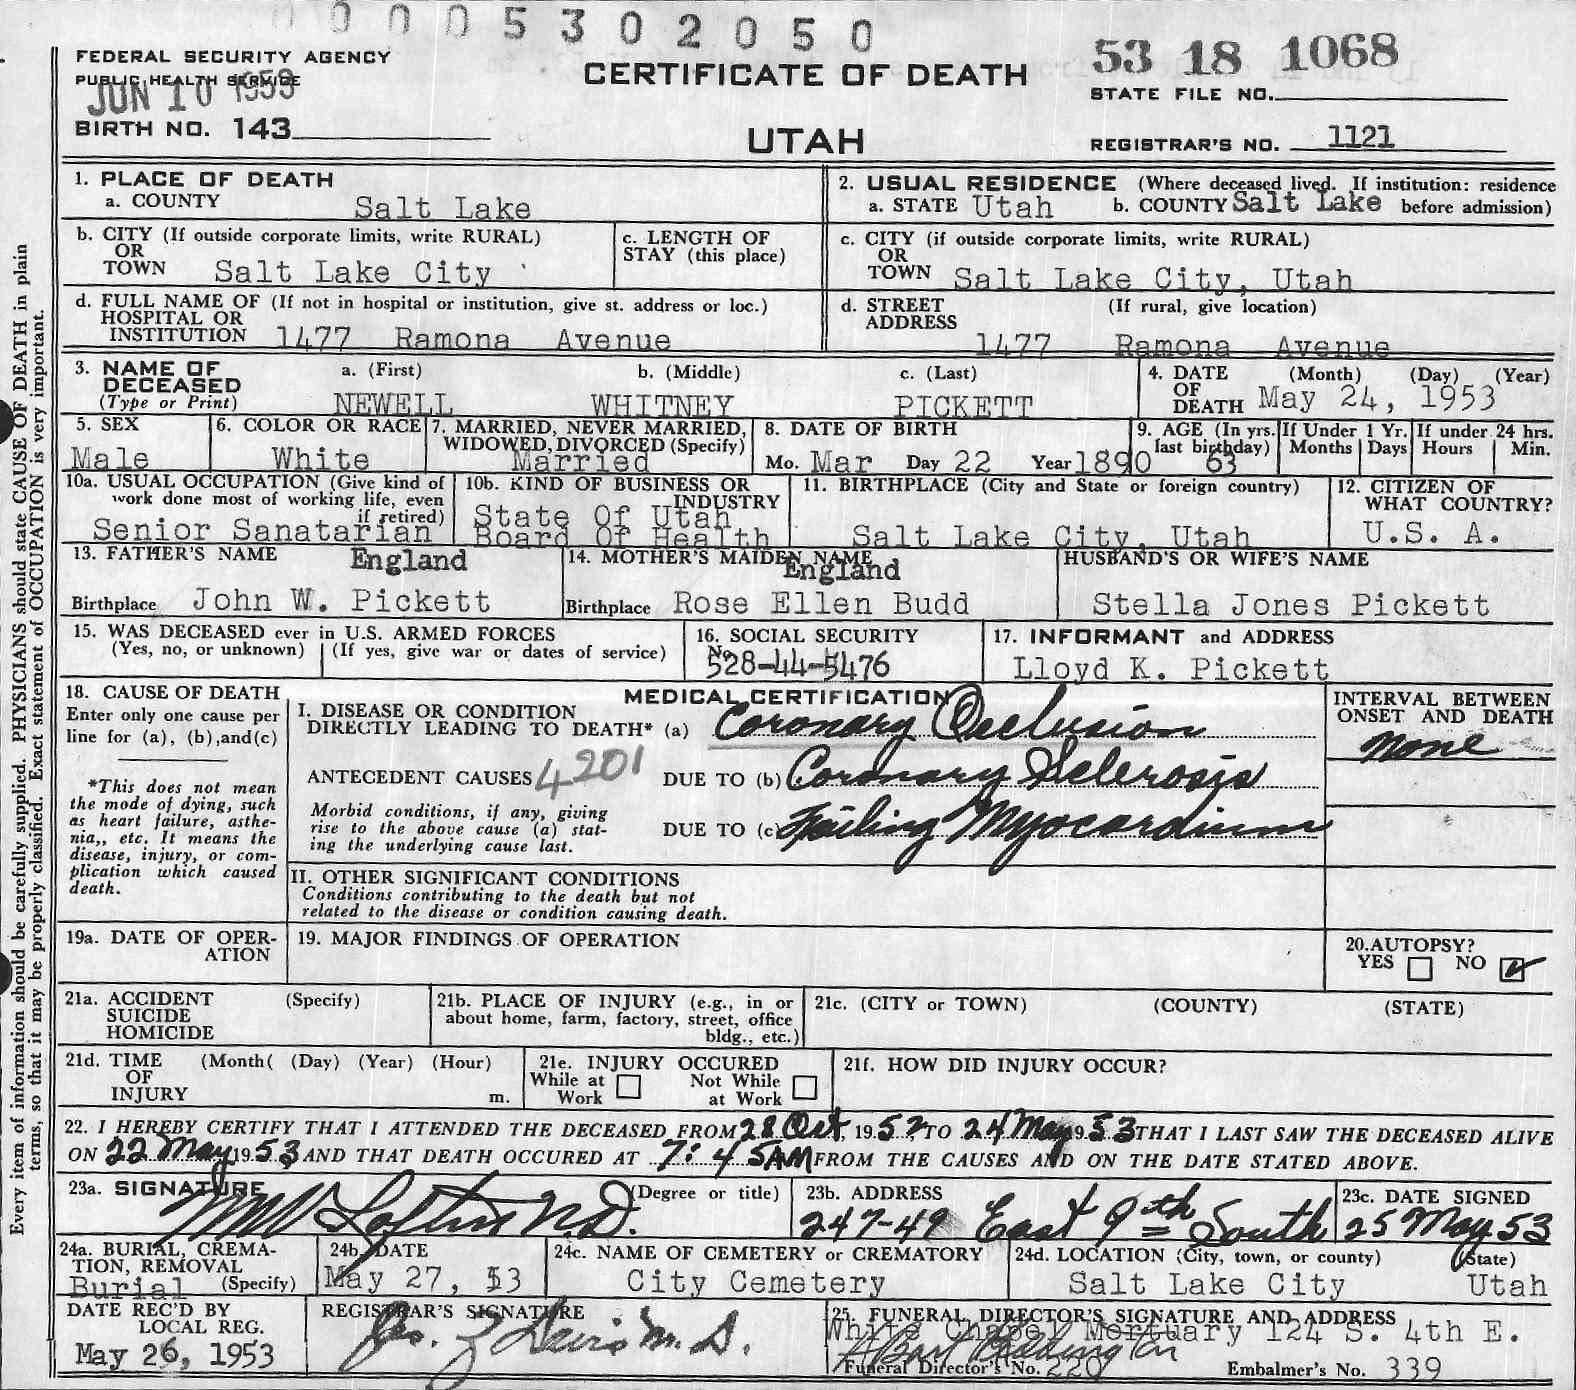 0 0 0 5 3 0 2 0 5 0
FEDERAL SECURITY AGENCY
PUBLIC HEALTH SERVICE
JUN 10 1953
BIRTH NO. 143
CERTIFICATE OF DEATH
UTAH
53 18 1068
STATE FILE NO.
REGISTRAR'S NO. 1121
1. PLACE OF DEATH
a. COUNTY Salt Lake
2. USUAL RESIDENCE (Where deceased lived. If institution: residence
a. STATE Utah b. COUNTY Salt Lake before admission)
b. CITY (If outside corporate limits, write RURAL)
OR
TOWN Salt Lake City
c. LENGTH OF
STAY (this place)
c. CITY (if outside corporate limits, write RURAL)
OR
TOWN Salt Lake City, Utah
d. FULL NAME OF (If not in hospital or institution, give st. address or loc.)
HOSPITAL OR
INSTITUTION 1477 Ramona Avenue
d. STREET (If rural, give location)
ADDRESS
1477 Ramona Avenue
3. NAME OF a. (First) b. (Middle) c. (Last)
DECEASED
(Type or Print) NEWELL WHITNEY PICKETT
4. DATE (Month) (Day) (Year)
OF
DEATH May 24, 1953
5. SEX
Male
6. COLOR OR RACE
White
7. MARRIED, NEVER MARRIED,
WIDOWED, DIVORCED (Specify)
Married
8. DATE OF BIRTH
Mo. Mar Day 22 Year 1890
9. AGE (In yrs. If Under 1 Yr. If under 24 hrs.
last birthday) Months Days Hours Min.
63
10a. USUAL OCCUPATION (Give kind of
work done most of working life, even
if retired)
Senior Sanatarian
10b. KIND OF BUSINESS OR
INDUSTRY
State Of Utah
Board Of Health
11. BIRTHPLACE (City and State or foreign country)
Salt Lake City, Utah
12. CITIZEN OF
WHAT COUNTRY?
U.S. A.
13. FATHER'S NAME England
Birthplace John W. Pickett
14. MOTHER'S MAIDEN NAME
England
Birthplace Rose Ellen Budd
HUSBAND'S OR WIFE'S NAME
Stella Jones Pickett
15. WAS DECEASED ever in U.S. ARMED FORCES
(Yes, no, or unknown) (If yes, give war or dates of service)
16. SOCIAL SECURITY
No.
528-44-5476
17. INFORMANT and ADDRESS
Lloyd K. Pickett
18. CAUSE OF DEATH
Enter only one cause per
line for (a), (b), and (c)
*This does not mean
the mode of dying, such
as heart failure, asthe-
nia,, etc. It means the
disease, injury, or com-
plication which caused
death.
MEDICAL CERTIFICATION
I. DISEASE OR CONDITION
DIRECTLY LEADING TO DEATH* (a) Coronary Occlusion
ANTECEDENT CAUSES 4201 DUE TO (b) Coronary Sclerosis
Morbid conditions, if any, giving
rise to the above cause (a) stat-
ing the underlying cause last.
DUE TO (c) Failing Myocardium
INTERVAL BETWEEN
ONSET AND DEATH
None
II. OTHER SIGNIFICANT CONDITIONS
Conditions contributing to the death but not
related to the disease or condition causing death.
19a. DATE OF OPER-
ATION
19. MAJOR FINDINGS OF OPERATION
20. AUTOPSY?
YES NO
21a. ACCIDENT (Specify)
SUICIDE
HOMICIDE
21b. PLACE OF INJURY (e.g., in or
about home, farm, factory, street, office
bldg., etc.)
21c. (CITY or TOWN) (COUNTY) (STATE)
21d. TIME (Month( (Day) (Year) (Hour)
OF
INJURY m.
21e. INJURY OCCURED
While at Not While
Work at Work
21f. HOW DID INJURY OCCUR?
22. I HEREBY CERTIFY THAT I ATTENDED THE DECEASED FROM 28 Oct, 1952 TO 24 May 1953 THAT I LAST SAW THE DECEASED ALIVE
ON 22 May 1953 AND THAT DEATH OCCURED AT 7:45 AM FROM THE CAUSES AND ON THE DATE STATED ABOVE.
23a. SIGNATURE (Degree or title)
M.D.
23b. ADDRESS
247-49 East 9th South
23c. DATE SIGNED
25 May 53
24a. BURIAL, CREMA-
TION, REMOVAL
Burial (Specify)
24b. DATE
May 27, 53
24c. NAME OF CEMETERY or CREMATORY
City Cemetery
24d. LOCATION (City, town, or county) (State)
Salt Lake City Utah
DATE REC'D BY
LOCAL REG.
May 26, 1953
REGISTRAR'S SIGNATURE
M.D.
25. FUNERAL DIRECTOR'S SIGNATURE AND ADDRESS
White Chapel Mortuary 124 S. 4th E.
Funeral Director's No. 220 Embalmer's No. 339
Every item of information should be carefully supplied. PHYSICIANS should state CAUSE OF DEATH in plain
terms, so that it may be properly classified. Exact statement of OCCUPATION is very important.